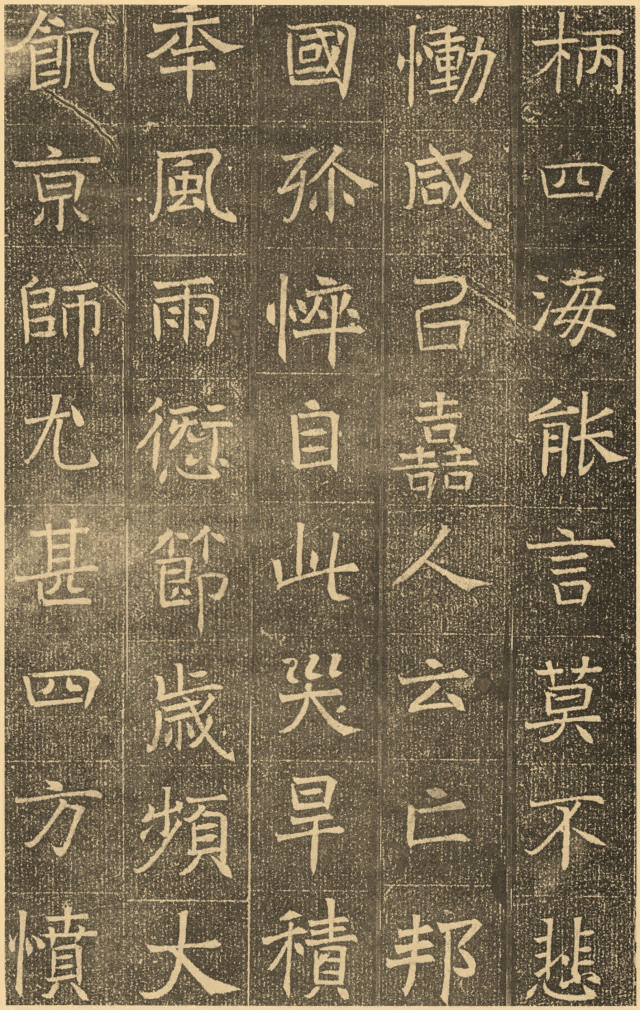 柄四海能言莫不悲
慟咸㠯嚞人云亡邦
國殄悴自此災旱積
年風雨愆節歳頻大
飢亰師尤甚四方憤